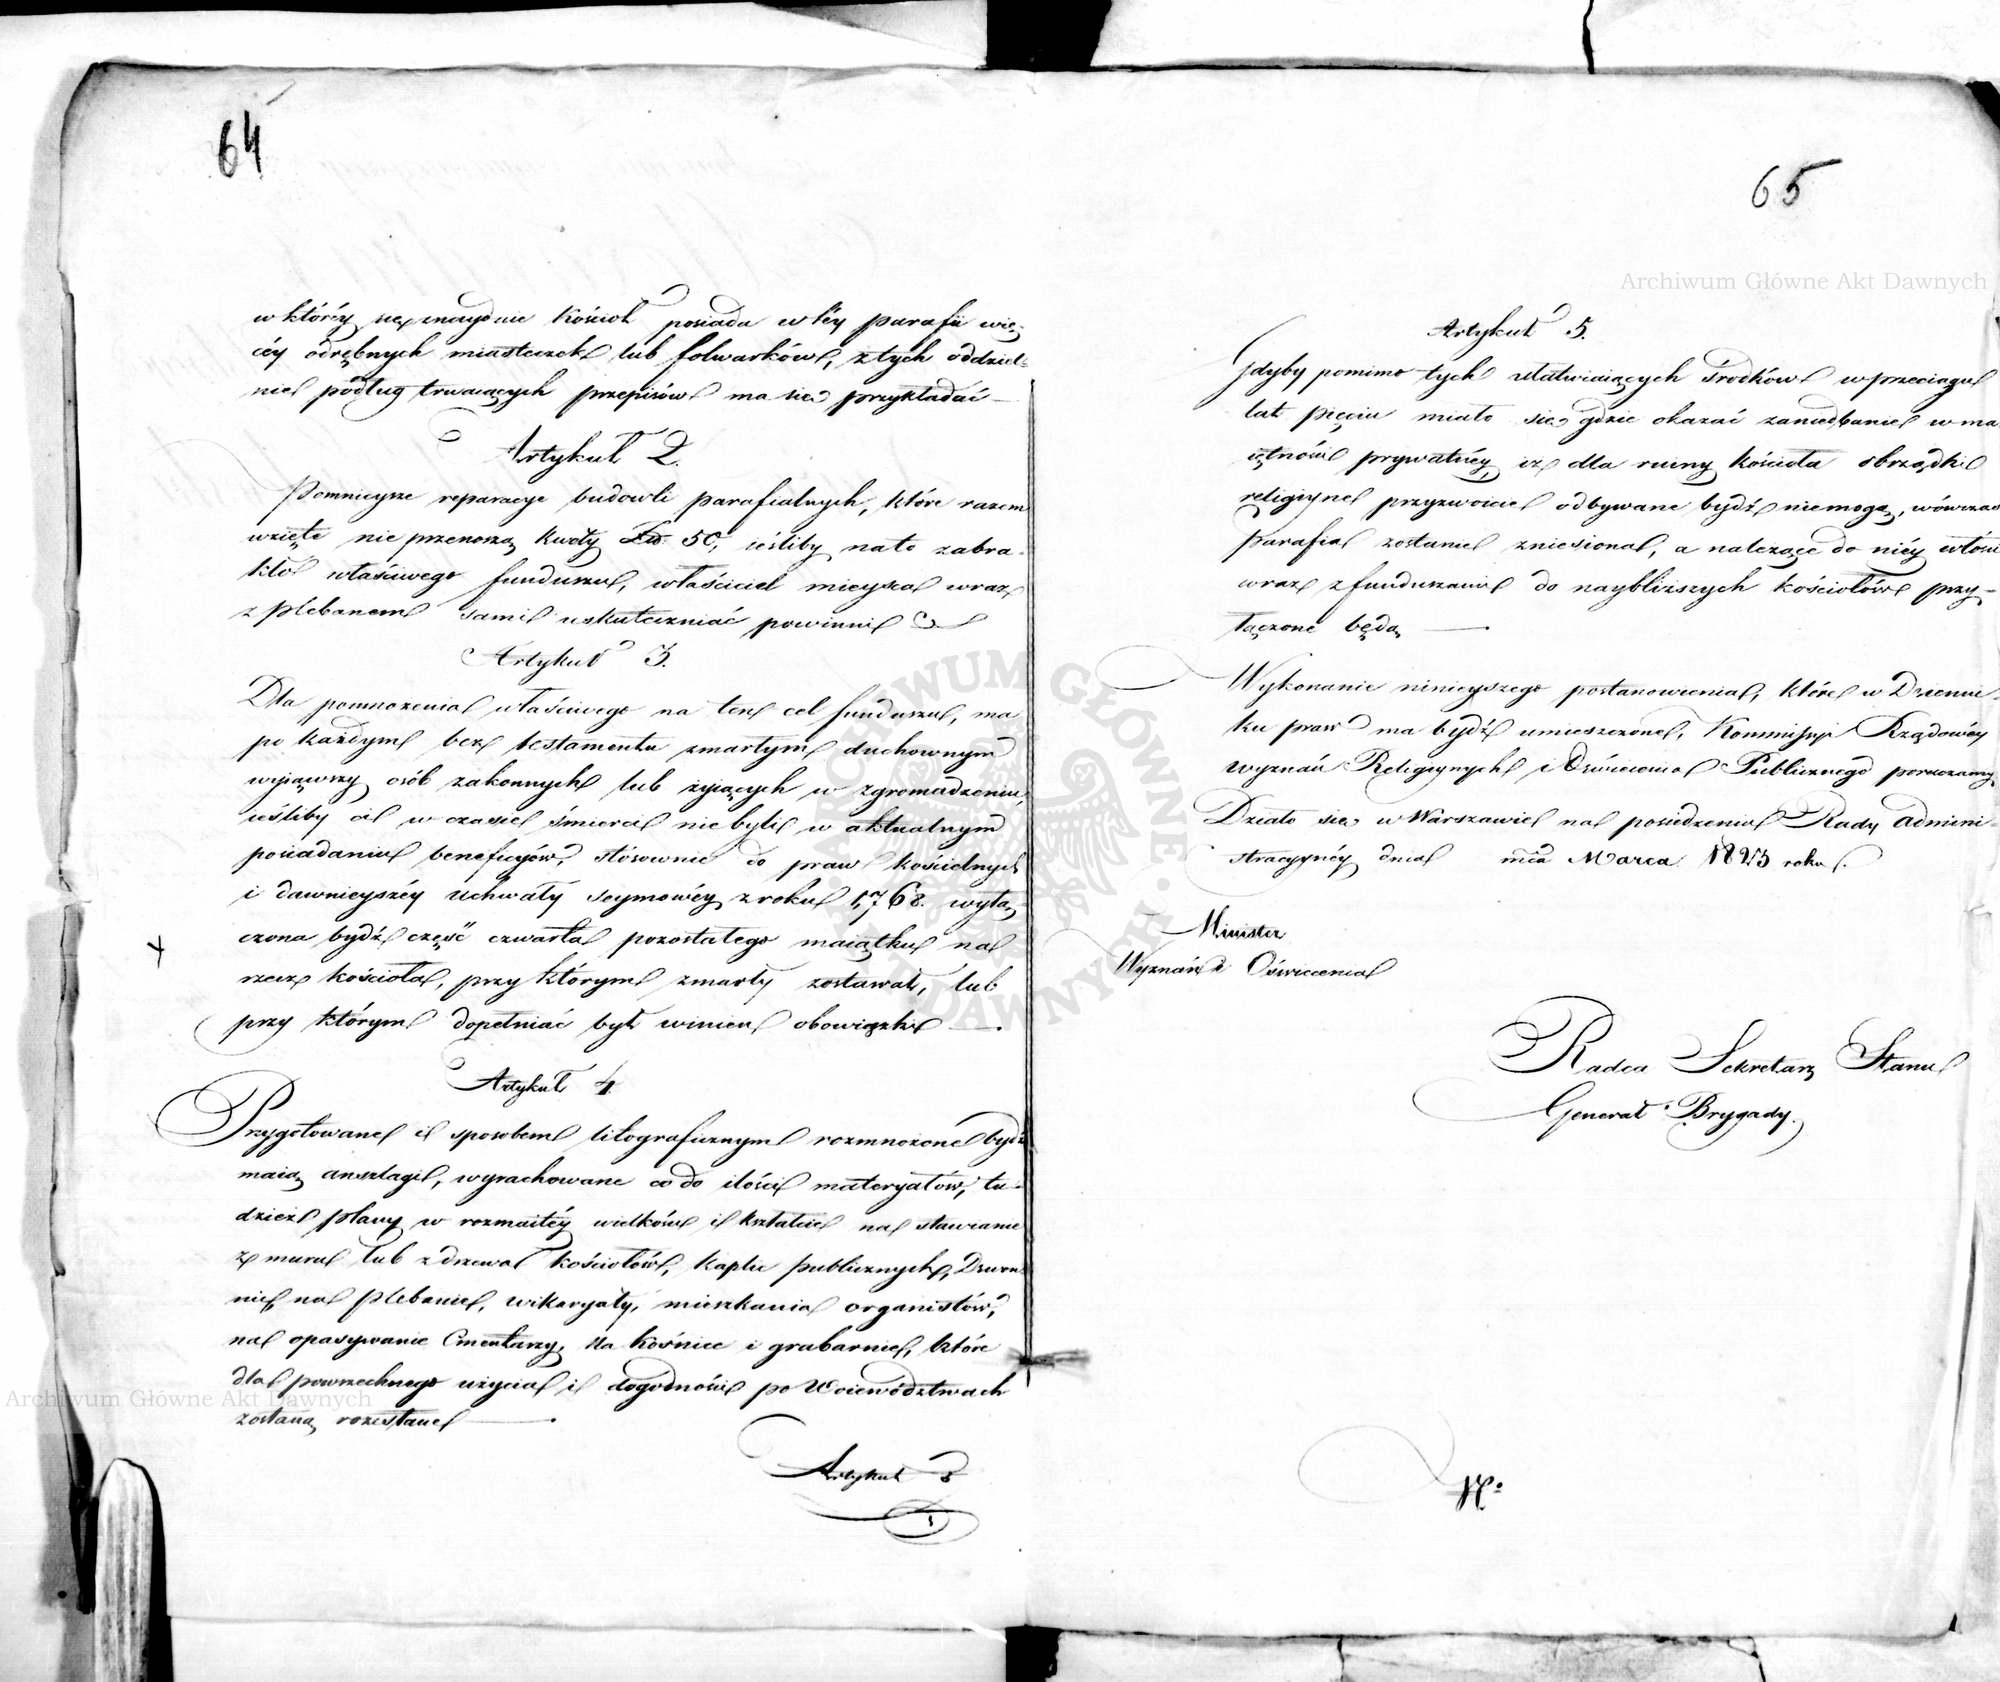 64
w któréy się znayduie kościoł posiada w téy parafii wię-
céy odrębnych miasteczek lub folwarków, z tych oddziel-
nie podług trwaiących przepisów ma się przykładać —
Artykuł 2.
Pomnieysze reparacye budowli parafialnych, które razem
wzięte nie przenoszą kwoty Zł. 50, ieśliby na to zabra-
kło właściwego funduszu, właściciel mieysca wraz
z plebanem sami uskuteczniać powinni
Artykuł 3.
Dla pomnożenia właściwego na ten cel funduszu, ma
po każdym bez testamentu zmarłym duchownym
wyiąwszy osób zakonnych lub żyiących w zgromadzeniu,
ieśliby ci w czasie śmierci nie byli w aktualnym
posiadaniu beneficyów, stósownie do praw kościelnych
i dawnieyszéy uchwały seymowéy z roku 1768. wyłą-
czona bydź część czwarta pozostałego maiątku na
rzecz kościoła, przy którym zmarły zostawał, lub
przy którym dopełniać był winien obowiązki —
Artykuł 4.
Przygotowane i sposobem litograficznym rozmnożone bydź
maią anszlagi, wyrachowane co do ilości materyałów, tu-
dzież plany w rozmaitéy wielkości i kształcie na stawianie
z muru lub z drzewa kościołów, kaplic publicznych, Dzwon-
nic, na plebanie, wikaryaty, mieszkania organistów,
na opasywanie Cmentarzy, na kośnice i grabarnie, które
dla powszechnego użycia i dogodności po Woiewództwach
zostaną rozesłane —
Artykuł 5
65
Artykuł 5.
Gdyby pomimo tych ułatwiaiących środków w przeciągu
lat pięciu miało się gdzie okazać zaniedbanie w ma
iętności prywatnéy, iż dla ruiny kościoła obrządki
religiyne przyzwoicie odbywane bydź niemogą, wówczas
parafia zostanie zniesiona, a należące do niéy włości
wraz z funduszami do naybliższych kościołów przy-
łączone będą —
Wykonanie ninieyszego postanowienia, które w Dzienni-
ku praw ma bydź umieszczone, Kommissyi Rządowéy
wyznań Religiynych i Oświecenia Publicznego poruczamy.
Działo się w Warszawie na posiedzeniu Rady Admini-
stracyynéy dnia mca Marca 1823 roku.
Minister
Wyznań i Oświecenia
Radca Sekretarz Stanu
Generał Brygady.
Archiwum Główne Akt Dawnych
Archiwum Główne Akt Dawnych
ARCHIWUM GŁÓWNE AKT DAWNYCH